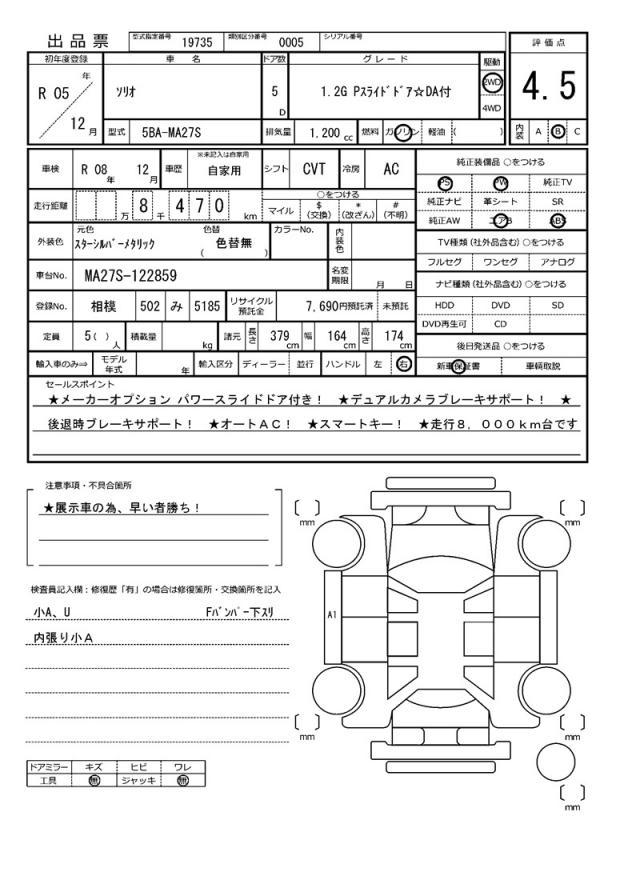 出品票 型式指定番号 19735 類別区分番号 0005 シリアル番号
初年度登録 車名 ドア数 グレード 駆動 評価点
R 05 年 12 月 ソリオ 5 D 1.2G Pスライドドア☆DA付 2WD 4WD 4.5
型式 5BA-MA27S 排気量 1.200 cc 燃料 ガソリン 軽油 ( ) 内装 A B C
車検 R 08 年 12 月 車歴 ※未記入は自家用 自家用 シフト CVT 冷房 AC 純正装備品 ○をつける
PS PW 純正TV
走行距離 万 8 千 470 km ○をつける
マイル $(交換) *(改ざん) #(不明) 純正ナビ 革シート SR
純正AW エアB ABS
外装色 元色 スターシルバーメタリック 色替 ( 色替無 ) カラーNo. 内装色
TV種類 (社外品含む) ○をつける
フルセグ ワンセグ アナログ
車台No. MA27S-122859 名変期限 月 日
ナビ種類 (社外品含む) ○をつける
登録No. 相模 502 み 5185 リサイクル預託金 7,690円預託済 未預託
HDD DVD SD
DVD再生可 CD
定員 5( ) 人 積載量 kg 諸元 長さ 379 cm 幅 164 cm 高さ 174 cm
後日発送品 ○をつける
輸入車のみ⇒ モデル年式 年 輸入区分 ディーラー 並行 ハンドル 左 右 新車保証書 車輌取説
セールスポイント
★メーカーオプション パワースライドドア付き! ★デュアルカメラブレーキサポート! ★
後退時ブレーキサポート! ★オートAC! ★スマートキー! ★走行8,000km台です
注意事項・不具合箇所
★展示車の為、早い者勝ち!
〔 〕 mm 〔 〕 mm
検査員記入欄:修復歴「有」の場合は修復箇所・交換箇所を記入
小A、U Fバンパー下スリ
A1
内張り小A
〔 〕 mm 〔 〕 mm
ドアミラー キズ ヒビ ワレ
工具 無 ジャッキ 無
〔 〕 mm